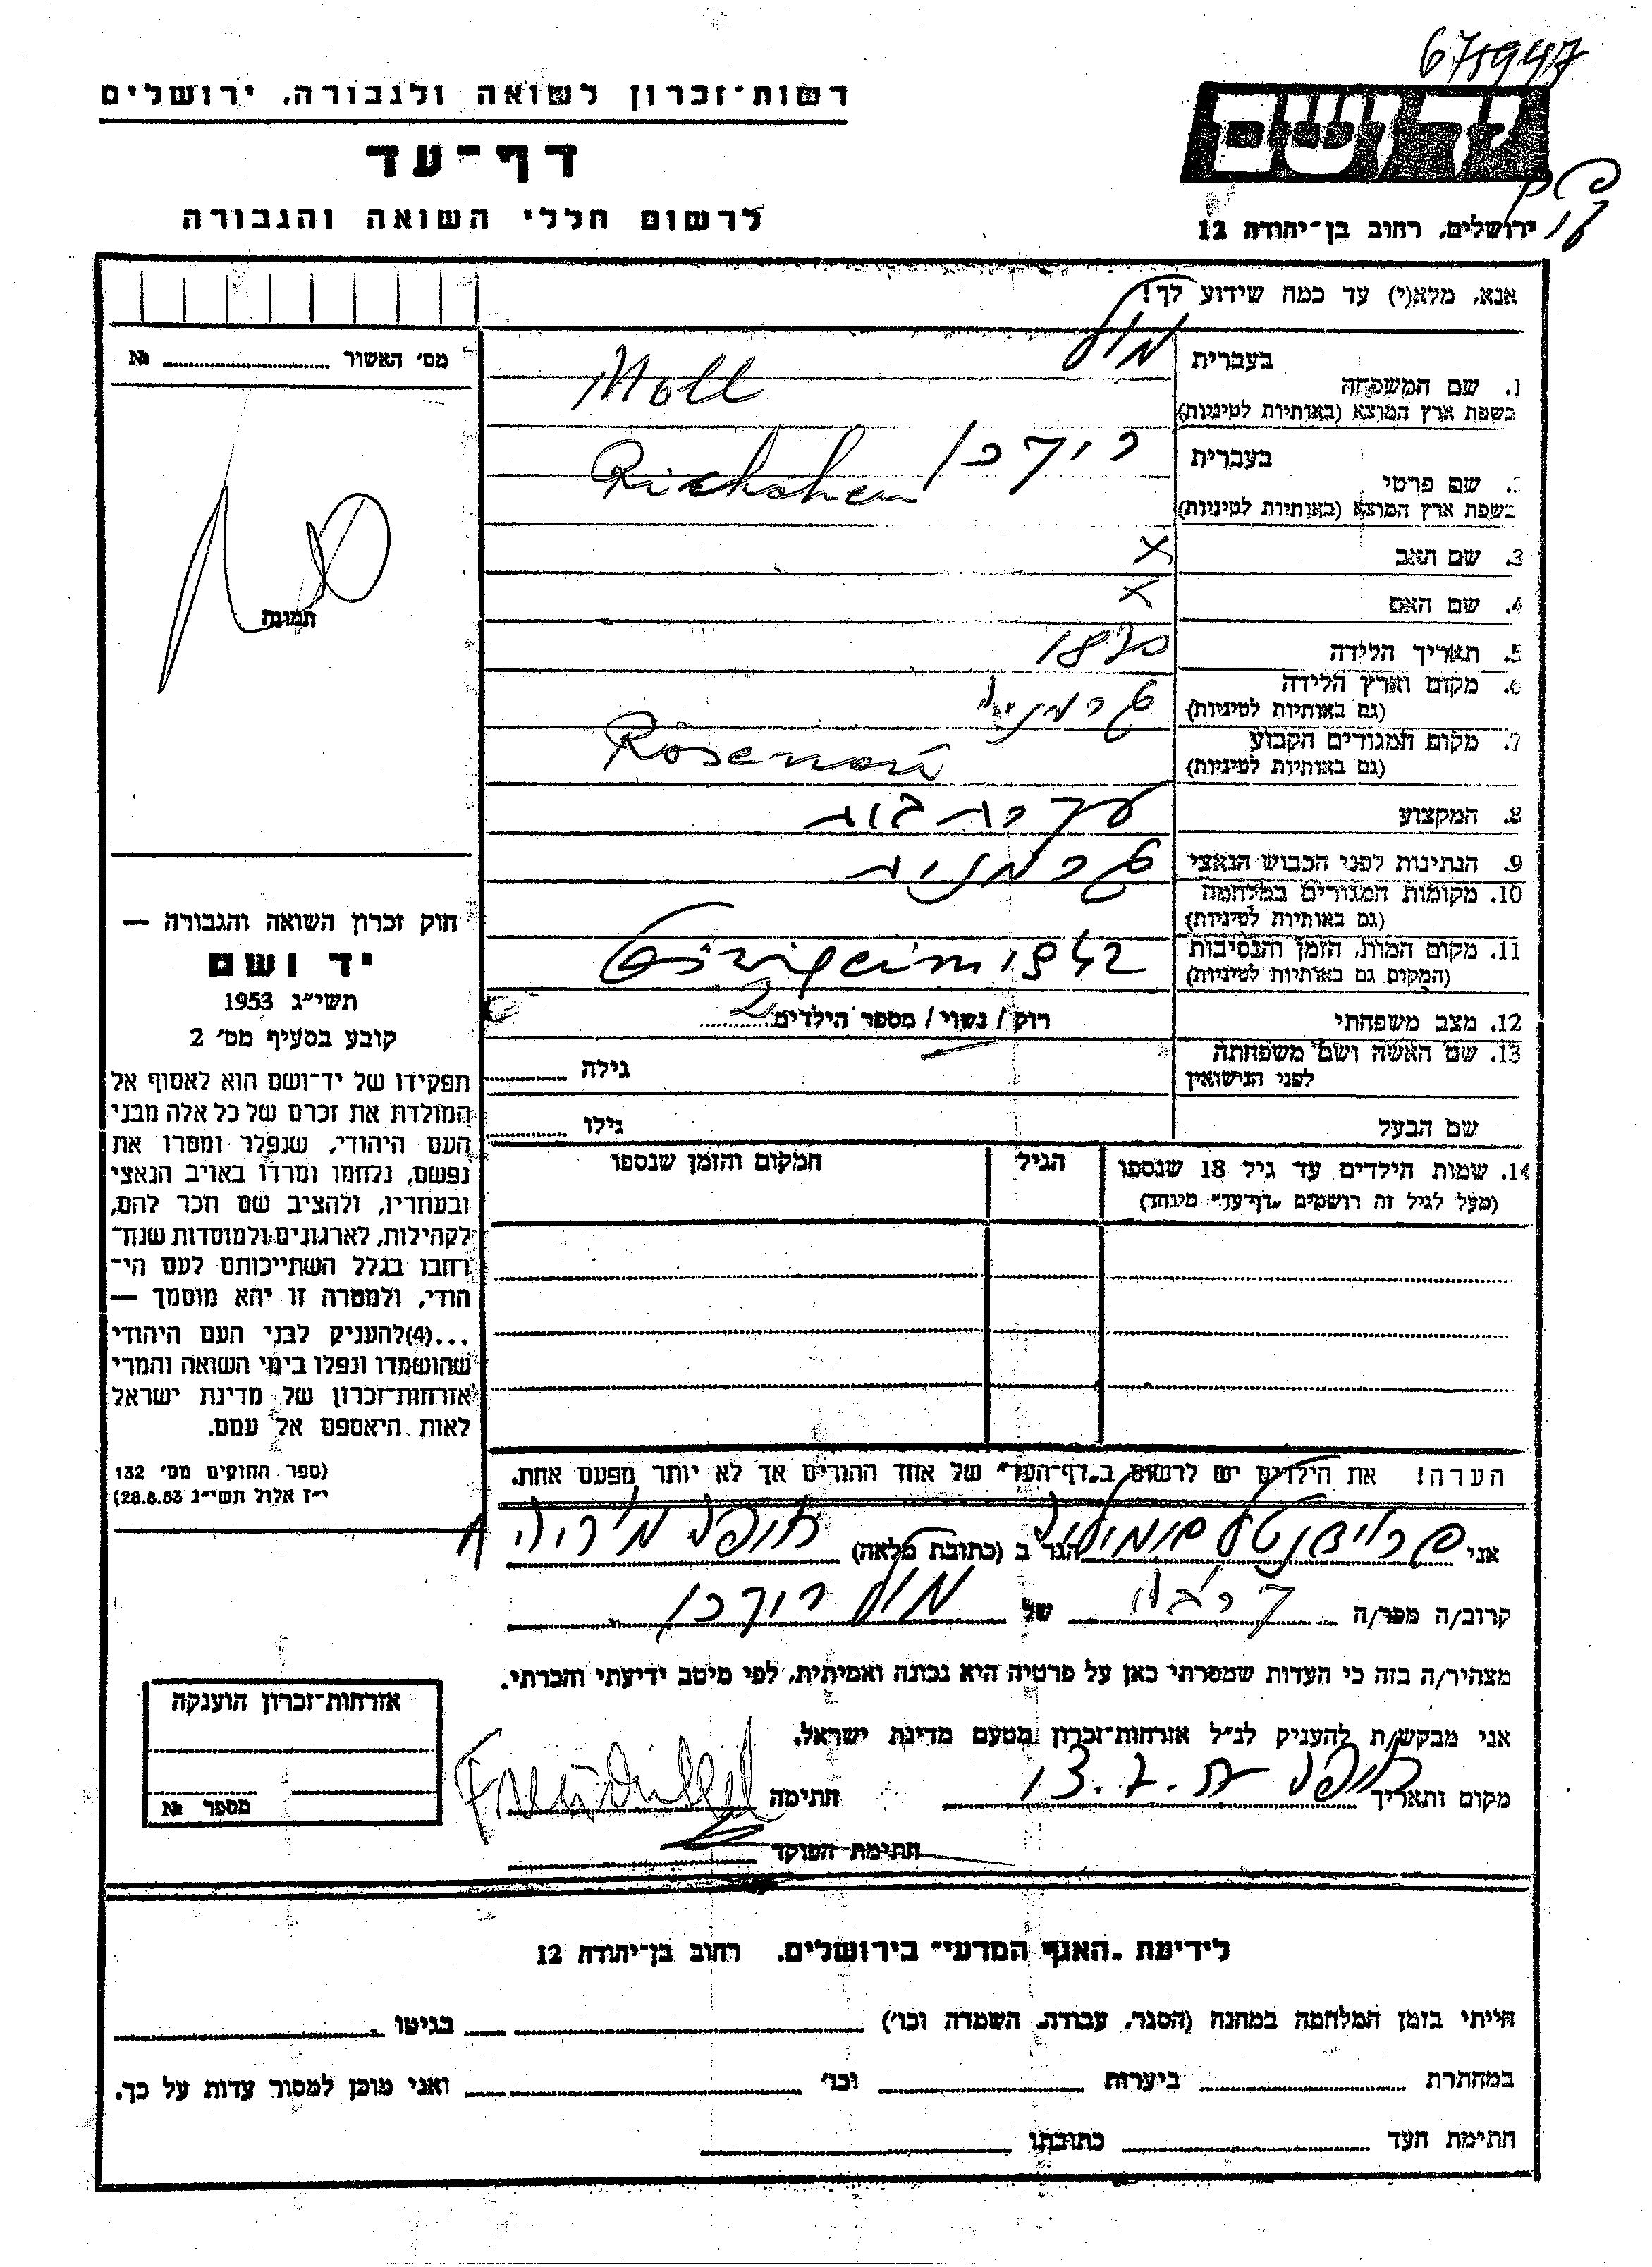 675947
רשות־זכרון לשואה ולגבורה, ירושלים
יד ושם
דף־עד
לרשום חללי השואה והגבורה
ירושלים, רחוב בן־יהודה 12
אנא, מלא(י) עד כמה שידוע לך!
מס׳ האשור № 
1. שם המשפחה
בעברית מול
בשפת ארץ המוצא (באותיות לטיניות) Moll
שם פרטי
בעברית
בשפת ארץ המוצא (באותיות לטיניות)
3. שם האב x
4. שם האם x
תמונה
5. תאריך הלידה 1870
6. מקום וארץ הלידה גרמניה
(גם באותיות לטיניות)
7. מקום המגורים הקבוע
(גם באותיות לטיניות)
8. המקצוע עקרת בית
9. הנתינות לפני הכבוש הנאצי גרמנית
10. מקומות המגורים במלחמה
(גם באותיות לטיניות)
11. מקום המות, הזמן והנסיבות 1942
(המקום גם באותיות לטיניות)
12. מצב משפחתי רווק / נשוי / מספר הילדים 2
13. שם האשה ושם משפחתה
לפני הנישואין גילה
שם הבעל גילו
14. שמות הילדים עד גיל 18 שנספו
(מעל לגיל זה רושמים „דף־עד" מיוחד)
הגיל
המקום והזמן שנספו
חוק זכרון השואה והגבורה —
יד ושם
תשי״ג 1953
קובע בסעיף מס׳ 2
תפקידו של יד־ושם הוא לאסוף אל
המולדת את זכרם של כל אלה מבני
העם היהודי, שנפלו ומסרו את
נפשם, נלחמו ומרדו באויב הנאצי
ובעוזריו, ולהציב שם וזכר להם,
לקהילות, לארגונים ולמוסדות שנח־
רבו בגלל השתייכותם לעם הי־
הודי, ולמטרה זו יהא מוסמך —
...(4)להעניק לבני העם היהודי
שהושמדו ונפלו בימי השואה והמרי
אזרחות־זכרון של מדינת ישראל
לאות היאספם אל עמם.
(ספר החוקים מס׳ 132
י״ז אלול תשי״ג 28.8.53)
הערה! את הילדים יש לרשום ב„דף־העד" של אחד ההורים אך לא יותר מפעם אחת.
אני הגר ב (כתובת מלאה) חיפה
קרוב/ה מכר/ה קרבה של מול
מצהיר/ה בזה כי העדות שמסרתי כאן על פרטיה היא נכונה ואמיתית, לפי מיטב ידיעתי והכרתי.
אני מבקש/ת להעניק לנ״ל אזרחות־זכרון מטעם מדינת ישראל.
מקום ותאריך חיפה 13.7. חתימה
חתימת הפוקד
אזרחות־זכרון הוענקה
מספר №
לידיעת „האגף המדעי" בירושלים, רחוב בן־יהודה 12
הייתי בזמן המלחמה במחנה (הסגר, עבודה, השמדה וכו׳) בגיטו
במחתרת ביערות וכו׳ ואני מוכן למסור עדות על כך.
חתימת העד כתובתו